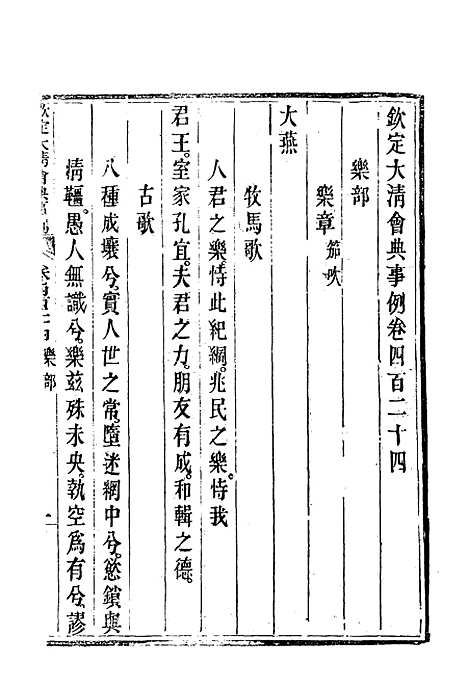 欽定大清會典事例卷四百二十四
樂部
樂章笳吹
大燕
牧馬歌
人君之樂。恃此紀綱。兆民之樂。恃我
君王。室家孔宜。夫君之力。朋友有成。和輯之德。
古歌
八種成壤兮。實人世之常。墮迷網中兮。慾鎖與
情韁。愚人無識兮。樂茲殊未央。執空為有兮。謬
欽定大清會典事例
樂部
一